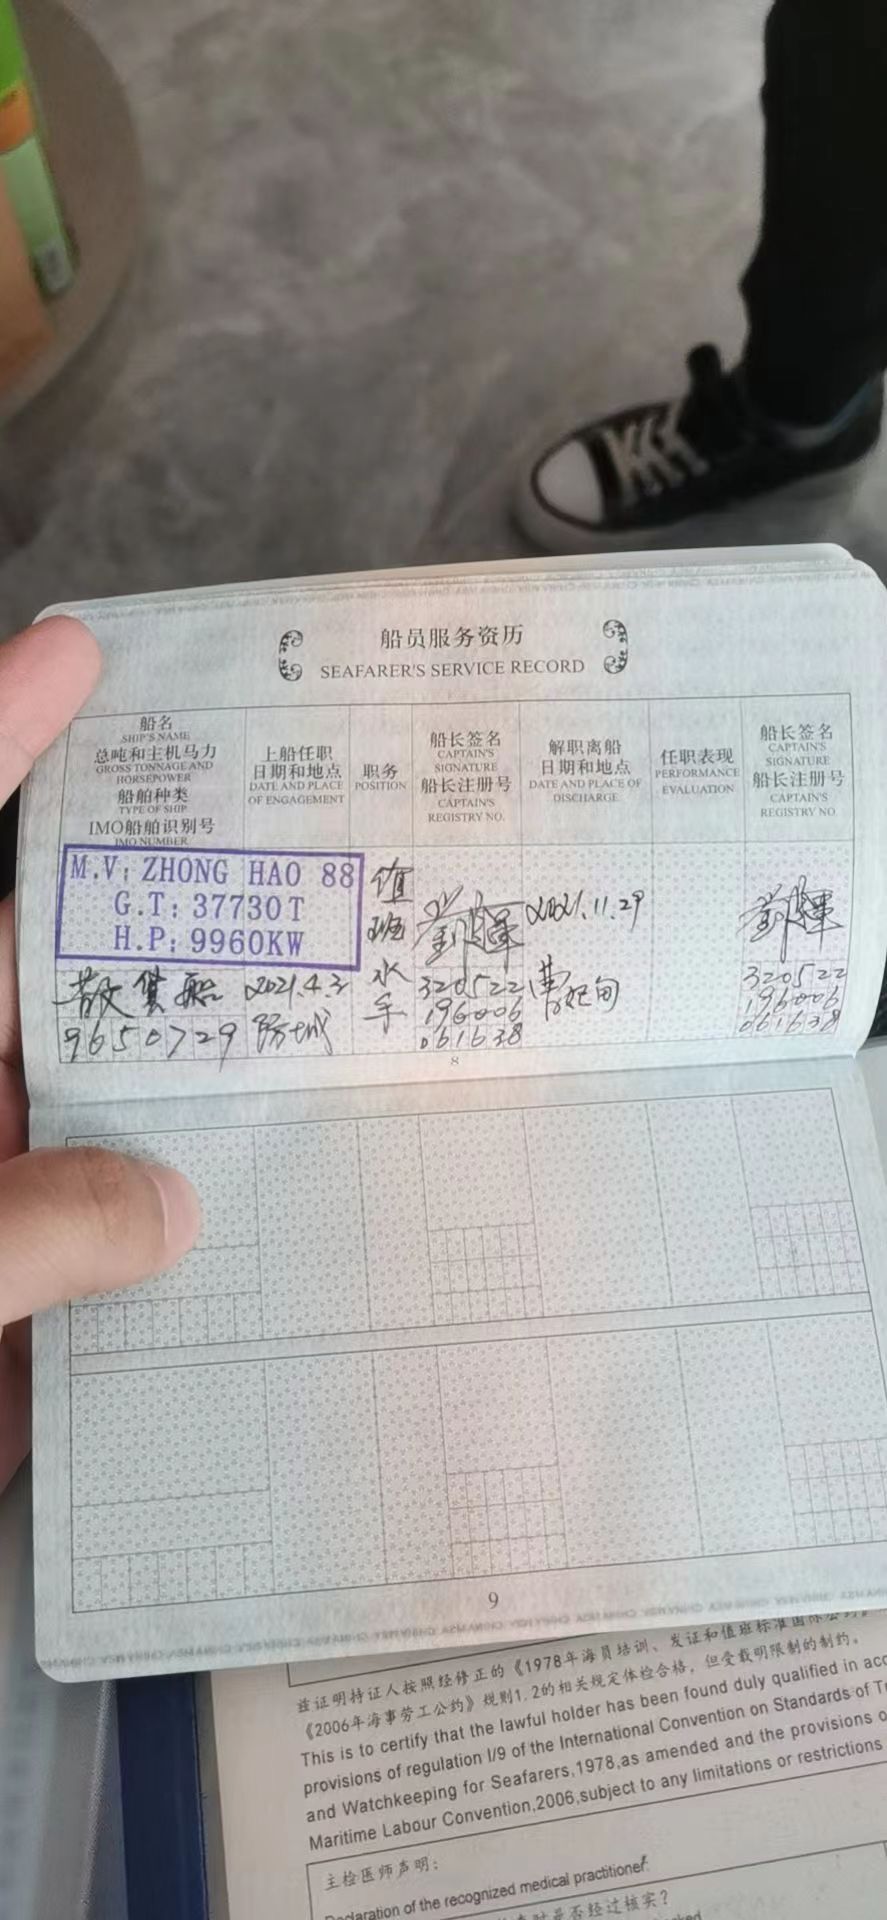 船员服务资历
SEAFARER'S SERVICE RECORD
船名
SHIP'S NAME
总吨和主机马力
GROSS TONNAGE AND
HORSEPOWER
船舶种类
TYPE OF SHIP
IMO船舶识别号
IMO NUMBER
上船任职
日期和地点
DATE AND PLACE
OF ENGAGEMENT
职务
POSITION
船长签名
CAPTAIN'S
SIGNATURE
船长注册号
CAPTAIN'S
REGISTRY NO.
解职离船
日期和地点
DATE AND PLACE OF
DISCHARGE
任职表现
PERFORMANCE
EVALUATION
船长签名
CAPTAIN'S
SIGNATURE
船长注册号
CAPTAIN'S
REGISTRY NO
M.V: ZHONG HAO 88
G.T: 37730T
H.P: 9960KW
散货船
9650729
2021.4.3
防城
值
班
水
手
320522
196006
061638
2021.11.29
曹妃甸
320522
196006
061638
8
9
兹证明持证人按照经修正的《1978年海员培训、发证和值班标准国际公约》
《2006年海事劳工公约》规则1.2的相关规定体检合格，但受载明限制的制约。
This is to certify that the lawful holder has been found duly qualified in
provisions of regulation I/9 of the International Convention on Standards of
and Watchkeeping for Seafarers,1978,as amended and the provisions
Maritime Labour Convention,2006,subject to any limitations or restrictions
主检医师声明：
Declaration of the recognized medical practitioner:
是否经过核实？